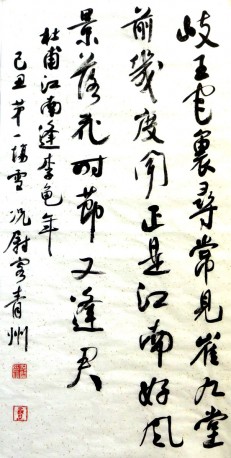 岐王宅裏尋常見崔九堂
前幾度聞正是江南好风
景落花时節又逢君
杜甫江南逢李龟年
己丑第一場雪况尉寓青州